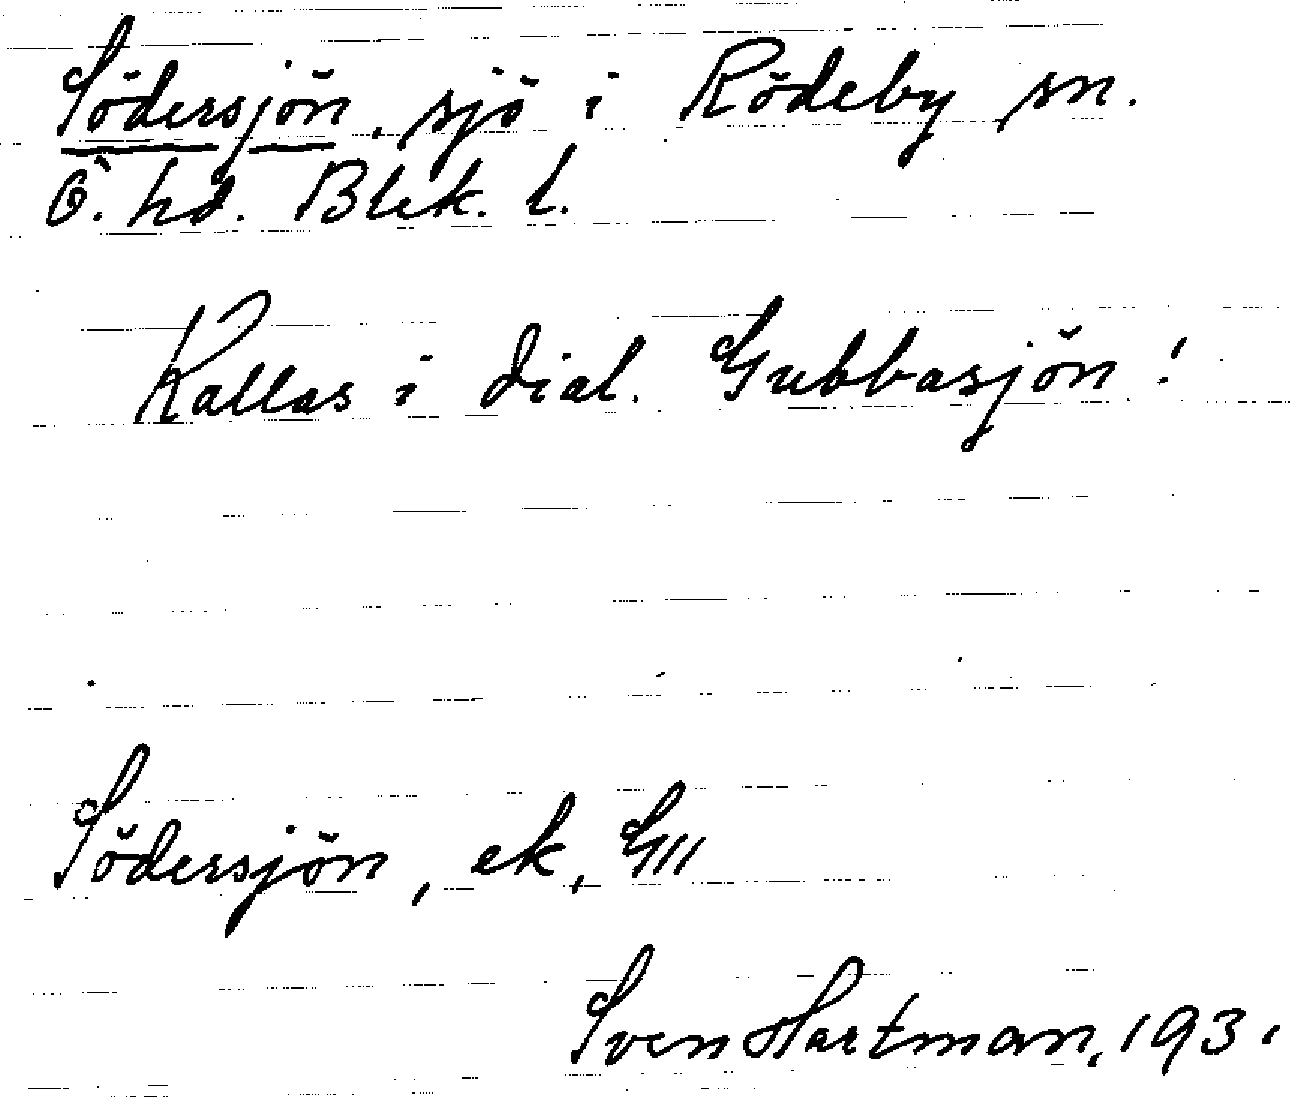 Södersjön, sjö i Rödeby sn.
Ö. hd. Blek. l.
Kallas i dial. Gubbasjön!
Södersjön, ek, GII
Sven Hartman, 1931